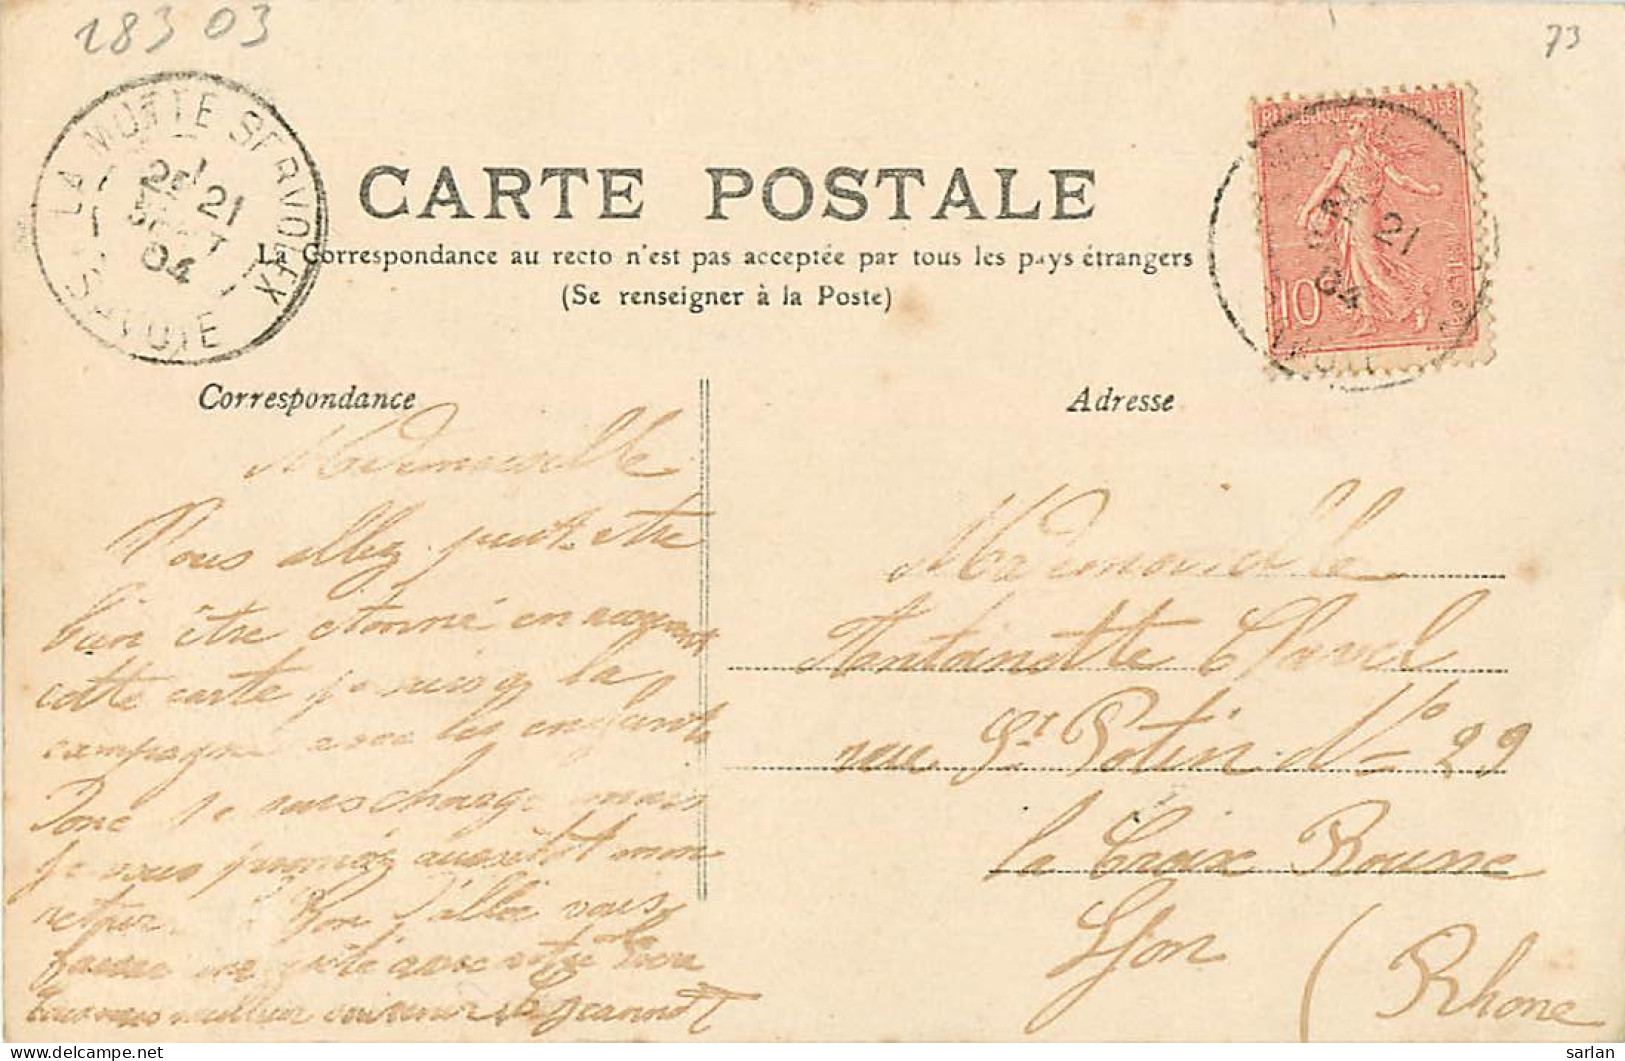 18303
73
LA MOTTE SERVOLEX
21
SEPT
04
SAVOIE
REPUBLIQUE FRANCAISE
10
21
04
CARTE POSTALE
La Correspondance au recto n'est pas acceptée par tous les pays étrangers
(Se renseigner à la Poste)
Correspondance
Adresse
Mademoiselle
Vous allez peut-etre
bien être etonné en
cette carte je suis a la
campagne avec les enfants
Donc je mais
je vous promêz aussitôt mon
retour d'aller vous
faire une avec votre
meilleur souvenir Jeannot
Mademoiselle
Antoinette Clavel
rue St Potin No 29
la Croix Rousse
Lyon
(Rhone
sarlan